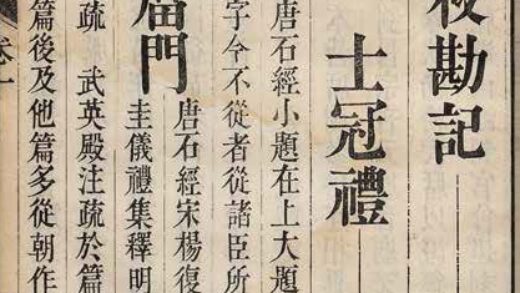 校勘記
士冠禮
唐石經小題在上大題
字今不從者從諸臣所
庿門
唐石經宋楊復
圭儀禮集釋明
疏 武英殿注疏於篇
篇後及他篇多從朝作
卷一